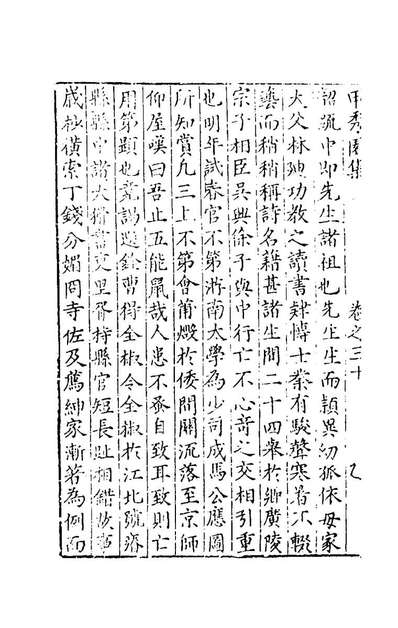 甲秀園集 卷之三十
韶疏中即先生諸祖也先生生而穎異幼孤依母家
大父林廸功教之讀書隸博士業有駿聲寒暑不輟
藝而稍稍稱詩名籍甚諸生間二十四舉於鄉廣陵
宗子相臣吳興徐子與中行亡不心奇之交相引重
也明年試春官不第游南太學為少司成馬公應圖
所知賞凡三上不第會莆燬於倭間關流落至京師
仰屋嘆曰吾止五能鼠哉人患不蚤自致耳致則亡
用第顯也竟謁選銓曹得全椒令全椒於江北號瘠
縣縣中諸大猾書吏里胥持縣官短長趾相錯故事
歲秒橫索丁錢分媚冏寺佐及薦紳家漸著為例而